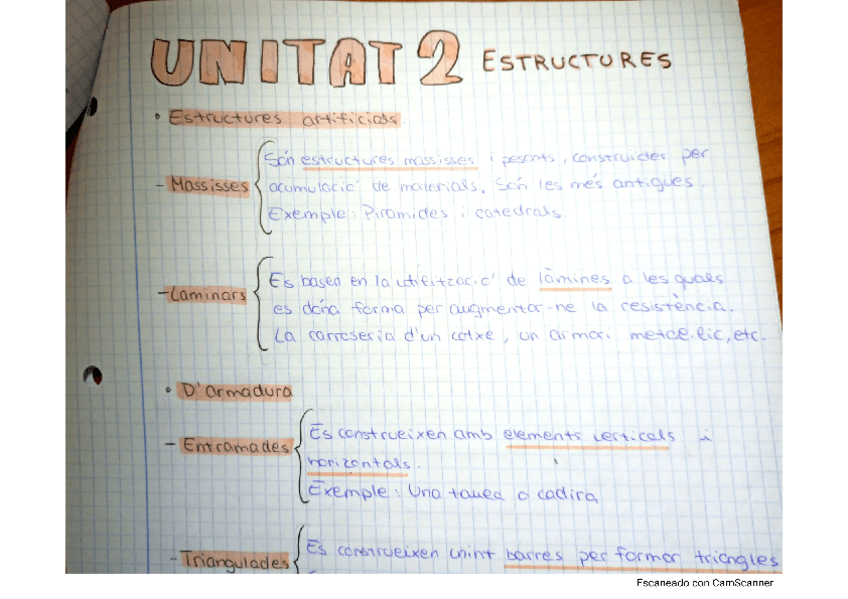 UNITAT 2 ESTRUCTURES
• Estructures artificials.
Són estructures massisses i pesants, construides per
- Massisses acumulació de materials. Són les més antigues.
Exemple: Piramides i catedrals.
Es basen en la utilització de làmines a les quals
- Laminars es dóna forma per augmentar-ne la resistència.
La carroseria d'un cotxe, un armari metàl.lic, etc.
• D'armadura
Es construeixen amb elements verticals i
- Entramades horizontals.
Exemple: Una taula o cadira
- Triangulades Es construeixen unint barres per formar triangles
Escaneado con CamScanner